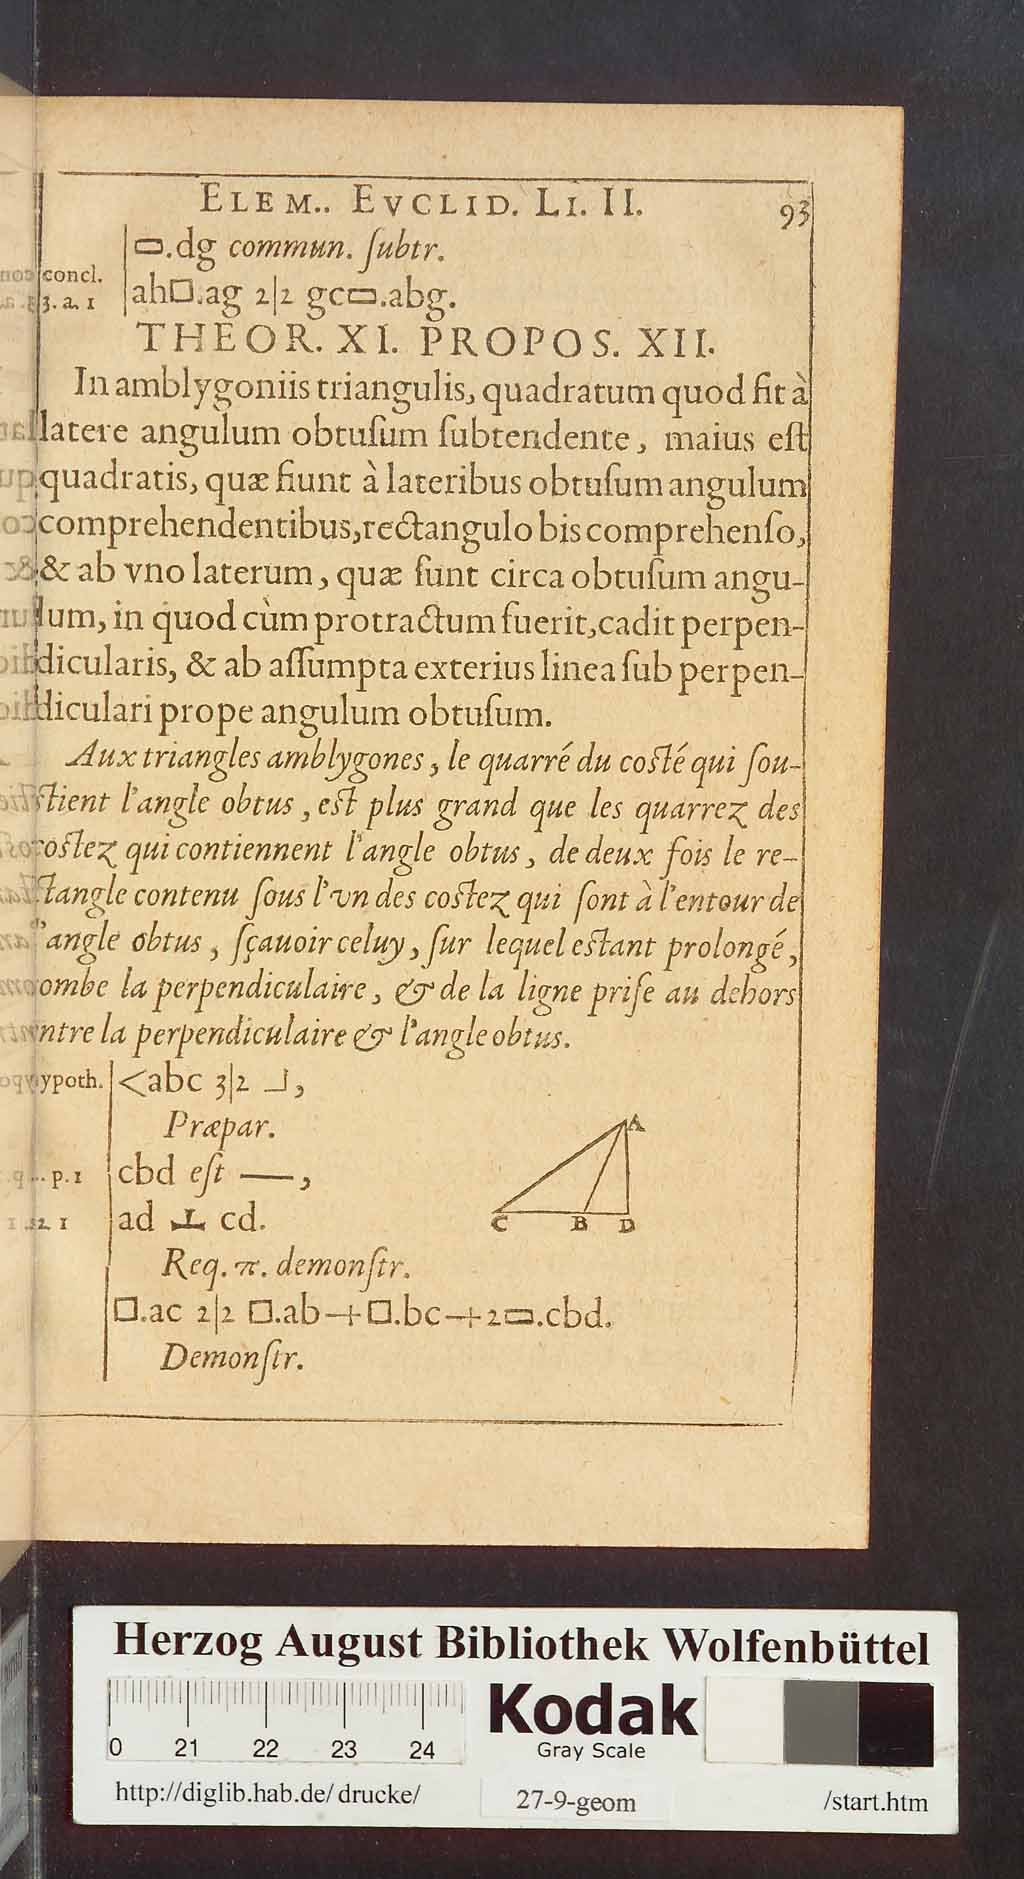 ELEM.. EVCLID. LI. II. 93
▭.dg commun. ſubtr.
concl.
3. a. 1 ah□.ag 2|2 gc▭.abg.
THEOR. XI. PROPOS. XII.
In amblygoniis triangulis, quadratum quod fit à
latere angulum obtuſum ſubtendente, maius eſt
quadratis, quæ fiunt à lateribus obtuſum angulum
comprehendentibus, rectangulo bis comprehenſo,
& ab vno laterum, quæ ſunt circa obtuſum angu-
lum, in quod cùm protractum fuerit, cadit perpen-
dicularis, & ab aſſumpta exterius linea ſub perpen-
diculari prope angulum obtuſum.
Aux triangles amblygones, le quarré du coſté qui ſou-
ſtient l'angle obtus, eſt plus grand que les quarrez des
coſtez qui contiennent l'angle obtus, de deux fois le re-
ctangle contenu ſous l'vn des coſtez qui ſont à l'entour de
l'angle obtus, ſçauoir celuy, ſur lequel eſtant prolongé,
tombe la perpendiculaire, & de la ligne priſe au dehors
entre la perpendiculaire & l'angle obtus.
hypoth. <abc 3|2 ⅃,
Præpar.
p. 1 cbd eſt —,
12. 1 ad ⊥ cd.
A
C B D
Req. π. demonſtr.
□.ac 2|2 □.ab+□.bc+2▭.cbd.
Demonſtr.
Herzog August Bibliothek Wolfenbüttel
0 21 22 23 24
Kodak
Gray Scale
http://diglib.hab.de/drucke/ 27-9-geom /start.htm